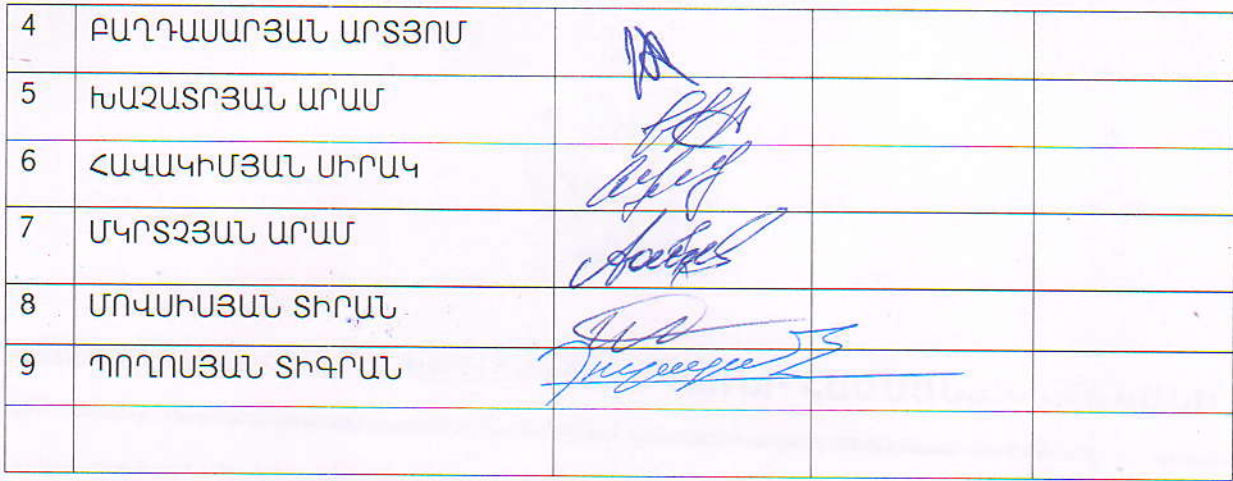 4 ԲԱՂԴԱՍԱՐՅԱՆ ԱՐՏՅՈՄ
5 ԽԱՉԱՏՐՅԱՆ ԱՐԱՄ
6 ՀԱՎԱԿԻՄՅԱՆ ՍԻՐԱԿ
7 ՄԿՐՏՉՅԱՆ ԱՐԱՄ
8 ՄՈՎՍԻՍՅԱՆ ՏԻՐԱՆ
9 ՊՈՂՈՍՅԱՆ ՏԻԳՐԱՆ